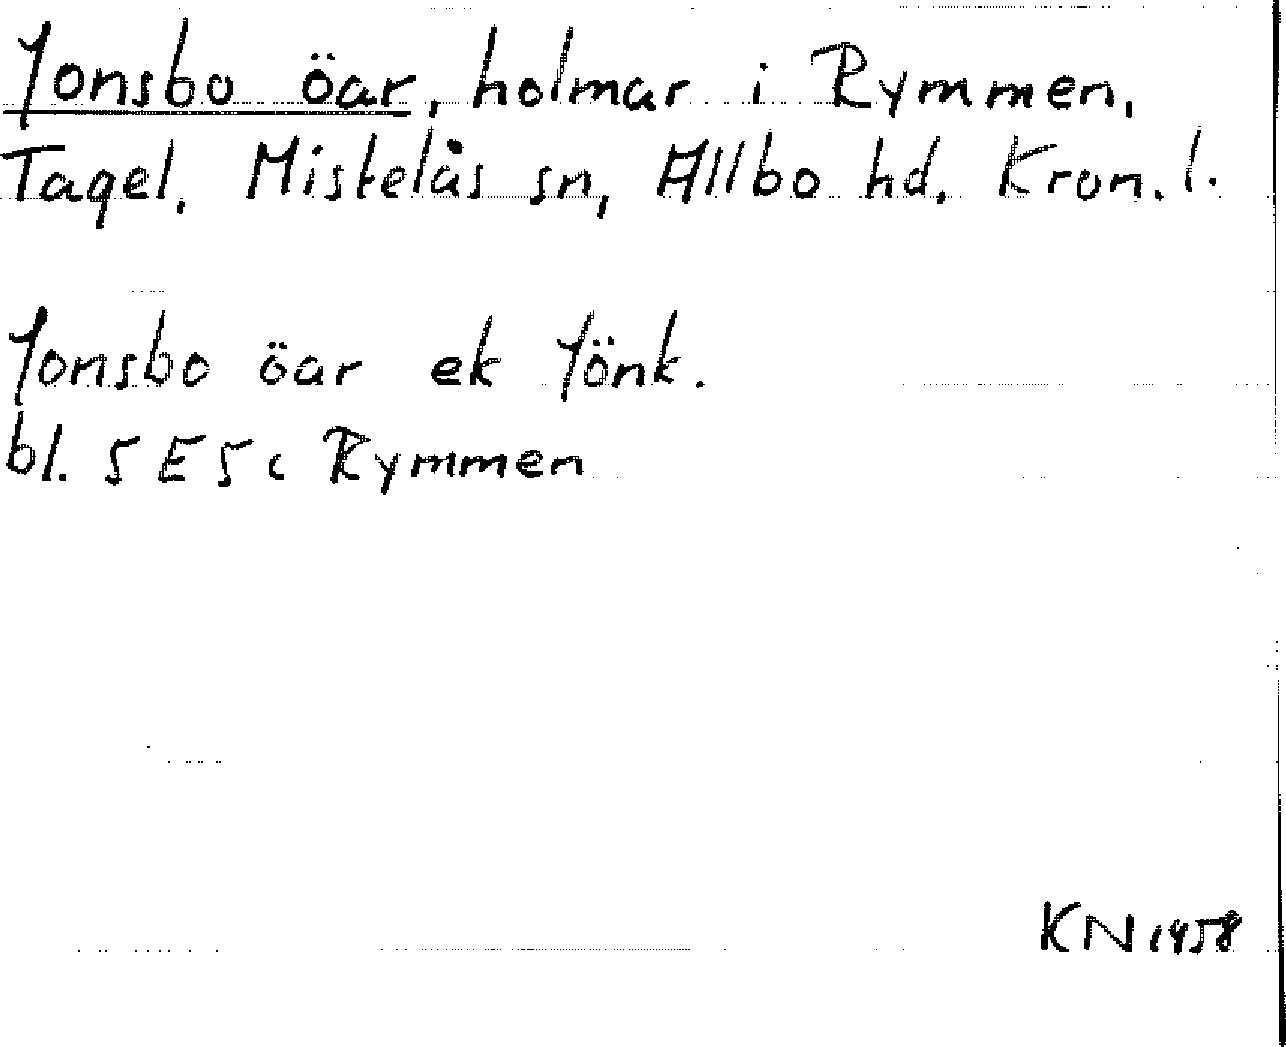 Jonsbo öar, holmar i Rymmen,
Tagel, Mistelås sn, Allbo hd. Kron. l.
Jonsbo öar ek Jönk.
bl. 5 E 5 c Rymmen
KN 1958